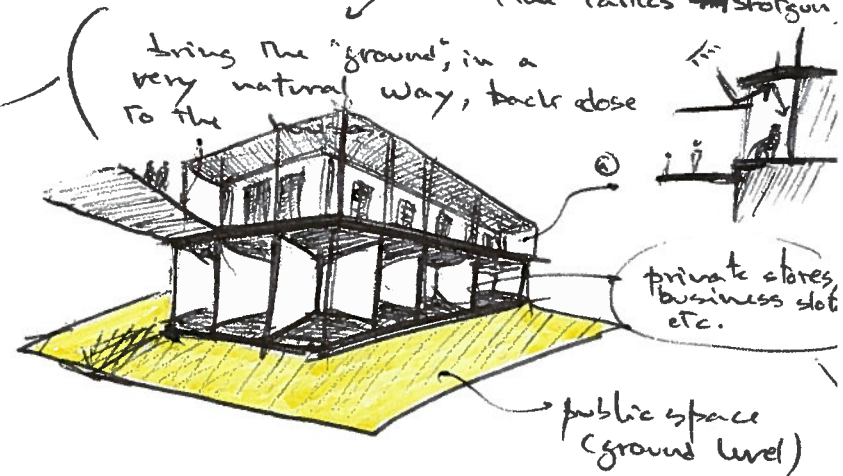 shotgun
bring the "ground", in a
very natural way, back close
to the
private stores,
business slot
etc.
public space
(ground level)